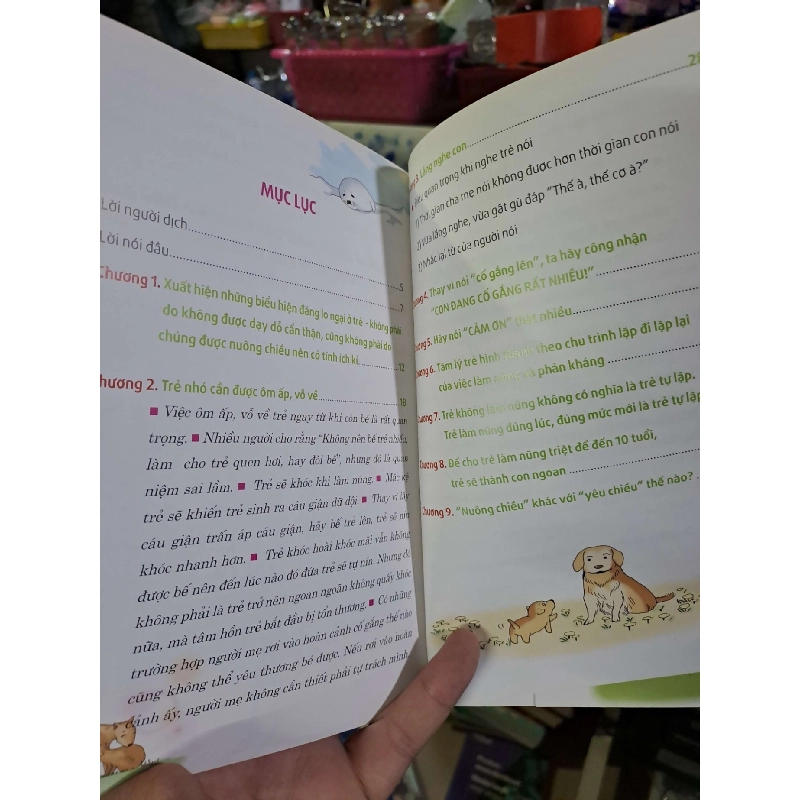 MỤC LỤC
Lời người dịch
Lời nói đầu.....5
.....7
Chương 1. Xuất hiện những biểu hiện đáng lo ngại ở trẻ - không phải
do không được dạy dỗ cẩn thận, cũng không phải do
chúng được nuông chiều nên có tính ích kỉ.....12
Chương 2. Trẻ nhỏ cần được ôm ấp, vỗ về.....18
■ Việc ôm ấp, vỗ về trẻ ngay từ khi còn bé là rất quan
trọng. ■ Nhiều người cho rằng "Không nên bế trẻ nhiều,
làm cho trẻ quen hơi, hay đòi bế", nhưng đó là quan
niệm sai lầm. ■ Trẻ sẽ khóc khi làm nũng. ■
trẻ sẽ khiến trẻ sinh ra cáu giận dữ dội. ■ Thay vì lấy
cáu giận trấn áp cáu giận, hãy bế trẻ lên, trẻ sẽ nín
khóc nhanh hơn. ■ Trẻ khóc hoài khóc mãi vẫn không
được bế nên đến lúc nào đó đứa trẻ sẽ tự nín. Nhưng đó
không phải là trẻ trở nên ngoan ngoãn không quấy khóc
nữa, mà tâm hồn trẻ bắt đầu bị tổn thương. ■ Có những
trường hợp người mẹ rơi vào hoàn cảnh cố gắng thế nào
cũng không thể yêu thương bé được. Nếu rơi vào hoàn
cảnh ấy, người mẹ không cần thiết phải tự trách mình
3. Lắng nghe con.....2
quan trọng khi nghe trẻ nói
1) Thời gian cha mẹ nói không được hơn thời gian con nói
2) Vừa lắng nghe, vừa gật gù đáp "Thế à, thế cơ à?"
3) Nhắc lại từ của người nói
4. Thay vì nói "cố gắng lên", ta hãy công nhận
"CON ĐANG CỐ GẮNG RẤT NHIỀU!"
Chương 5. Hãy nói "CẢM ƠN" thật nhiều.....
Chương 6. Tâm lý trẻ hình thành theo chu trình lặp đi lặp lại
của việc làm nũng và phản kháng.....
Chương 7. Trẻ không làm nũng không có nghĩa là trẻ tự lập.
Trẻ làm nũng đúng lúc, đúng mức mới là trẻ tự lập
Chương 8. Để cho trẻ làm nũng triệt để đến 10 tuổi,
trẻ sẽ thành con ngoan.....
Chương 9. "Nuông chiều" khác với "yêu chiều" thế nào? .